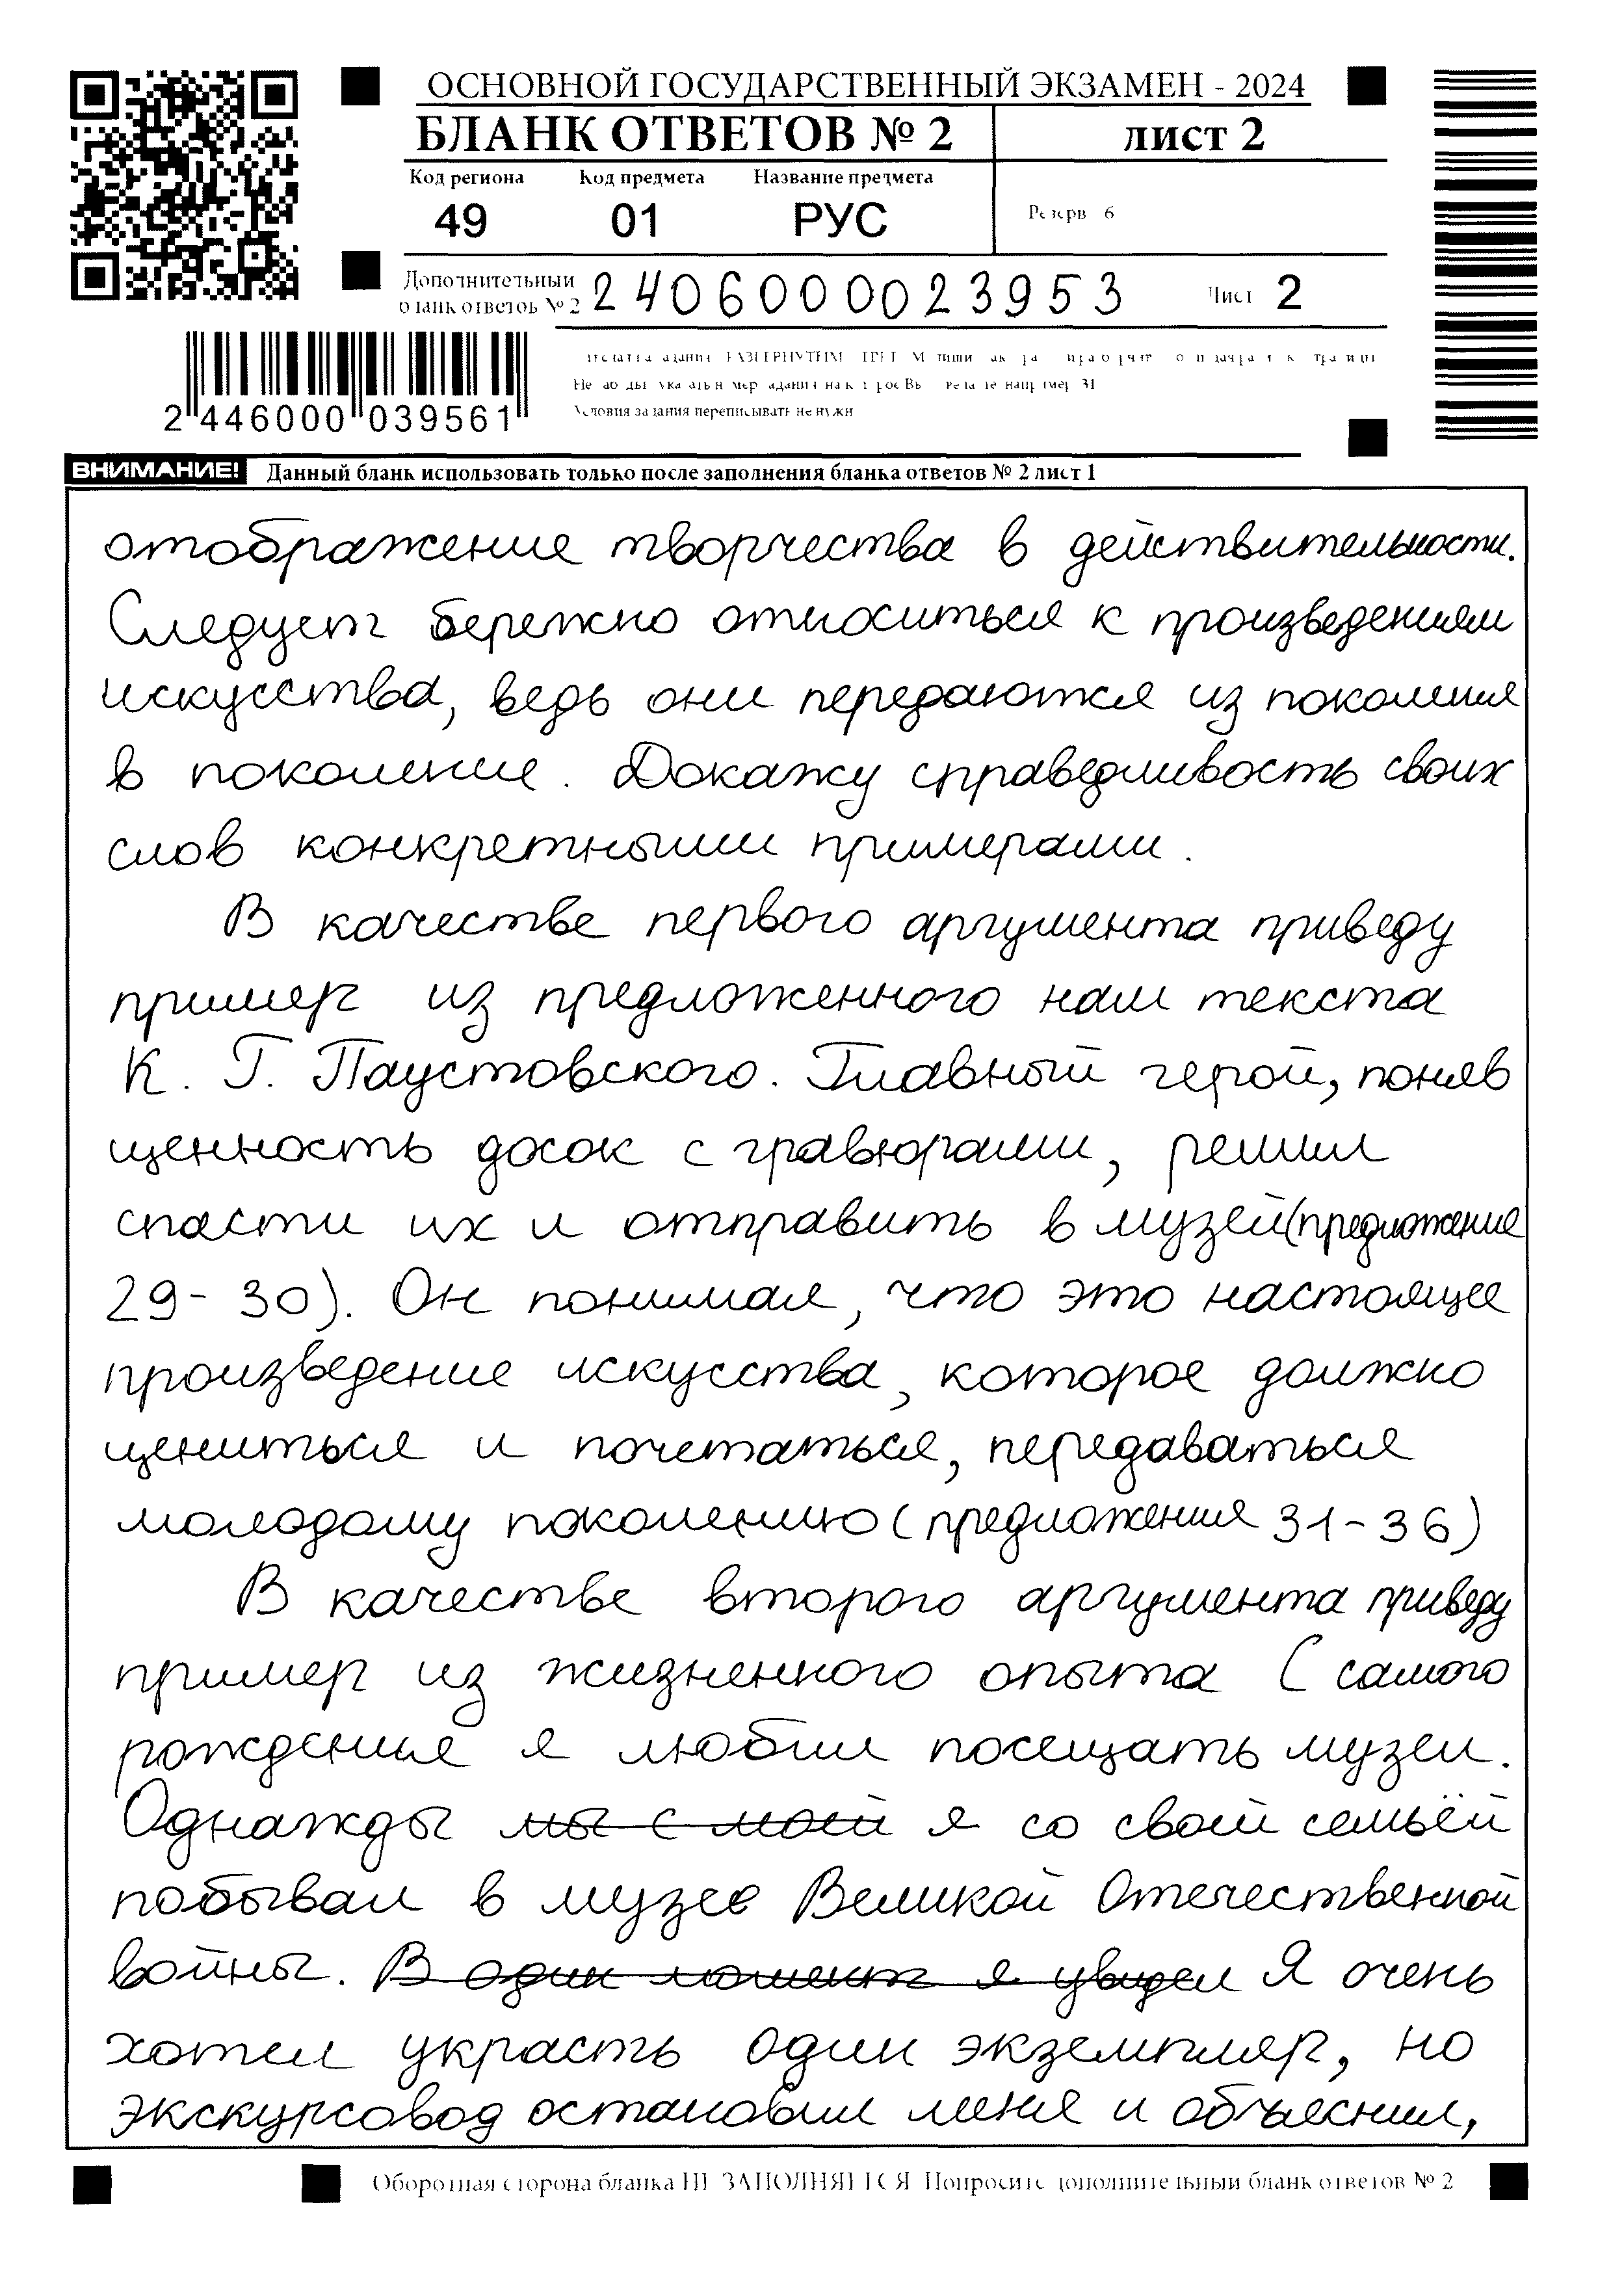 ОСНОВНОЙ ГОСУДАРСТВЕННЫЙ ЭКЗАМЕН - 2024
БЛАНК ОТВЕТОВ № 2
лист 2
Код региона Код предмета Название предмета
49 01 РУС
Резерв 6
Дополнительный
бланк ответов № 2
2406000023953
Лист 2
2 446000 039561
Условия задания переписывать не нужно
ВНИМАНИЕ! Данный бланк использовать только после заполнения бланка ответов № 2 лист 1
отображение творчества в действительности.
Следует бережно относиться к произведениям
искусства, ведь они передаются из поколения
в поколение. Докажу справедливость своих
слов конкретными примерами.
В качестве первого аргумента приведу
пример из предложенного нам текста
К. Г. Паустовского. Главный герой, поняв
ценность досок с гравюрами, решил
спасти их и отправить в музей(предложение
29- 30). Он понимал, что это настоящее
произведение искусства, которое должно
цениться и почетаться, передаваться
молодому поколению (предложения 31-36)
В качестве второго аргумента приведу
пример из жизненного опыта ( самого
рождения я любил посещать музеи.
Однажды мы с моей я со своей семьёй
побывал в музее Великой Отечественной
войны. В один момент я увидел Я очень
хотел украсть один экземпляр, но
экскурсовод остановил меня и объяснил,
Оборотная сторона бланка НЕ ЗАПОЛНЯЕТСЯ Попросите дополнительный бланк ответов № 2